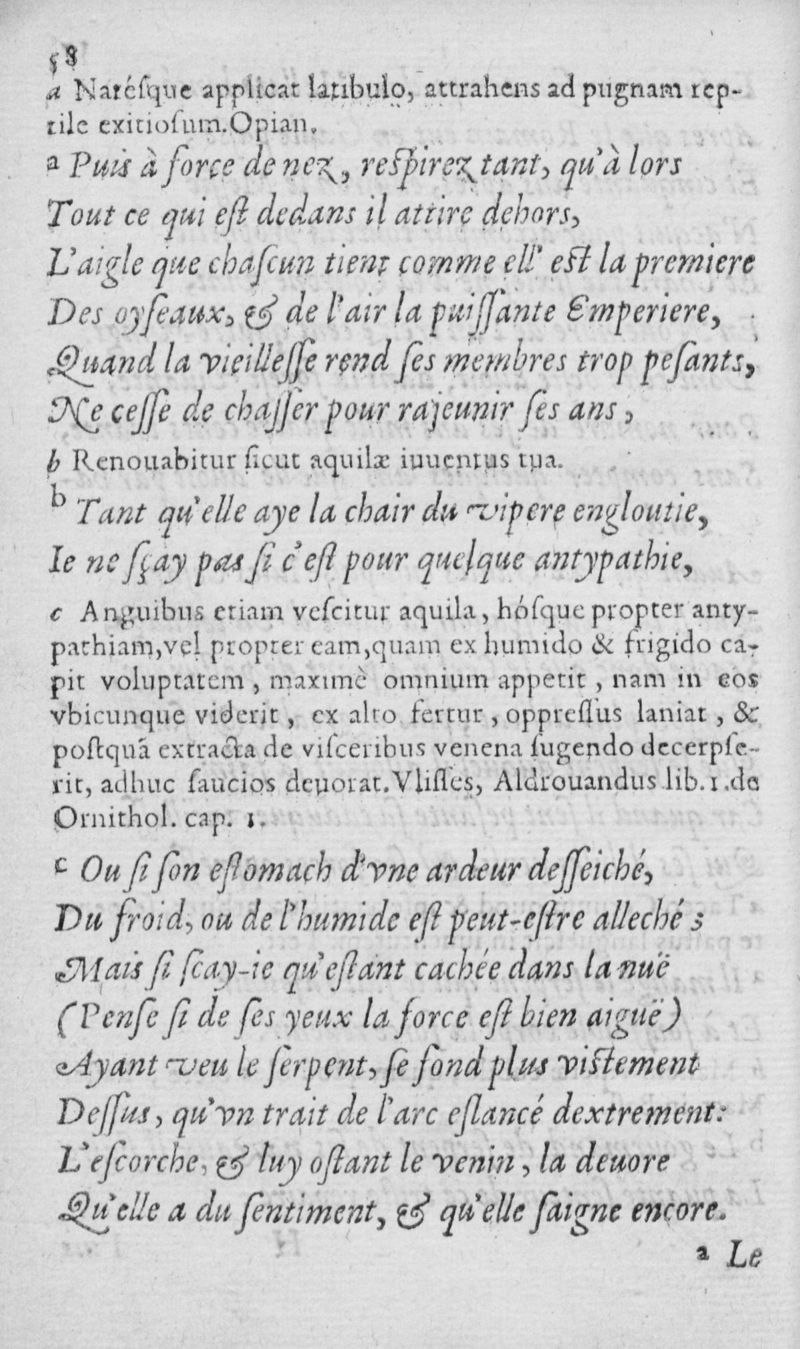 58
a Narésque applicat latibulo, attrahens ad pugnam rep-
tile exitiosum. Opian.
a Puis à force de nez, respirez tant, qu'à lors
Tout ce qui est dedans il attire dehors,
L'aigle que chascun tient comme ell' est la premiere
Des oyseaux, & de l'air la puissante Emperiere,
Quand la vieillesse rend ses membres trop pesants,
Ne cesse de chasser pour rajeunir ses ans,
b Renouabitur sicut aquilæ iuuentus tua.
b Tant qu'elle aye la chair du vipere engloutie,
Ie ne sçay pas si c'est pour quelque antypathie,
c Anguibus etiam vescitur aquila, hósque propter anty-
pathiam, vel propter eam, quam ex humido & frigido ca-
pit voluptatem, maximè omnium appetit, nam in eos
vbicunque viderit, ex alto fertur, oppressus laniat, &
postquã extracta de visceribus venena sugendo decerpse-
rit, adhuc saucios deuorat. Vlisses, Aldrouandus lib. 1. de
Ornithol. cap. 1.
c Ou si son estomach d'vne ardeur desseiché,
Du froid, ou de l'humide est peut-estre alleché s
Mais si scay-ie qu'estant cachée dans la nuë
(Pense si de ses yeux la force est bien aiguë)
Ayant veu le serpent, se fond plus vistement
Dessus, qu'vn trait de l'arc eslancé dextrement:
L'escorche, & luy ostant le venin, la deuore
Qu'elle a du sentiment, & qu'elle saigne encore.
a Le